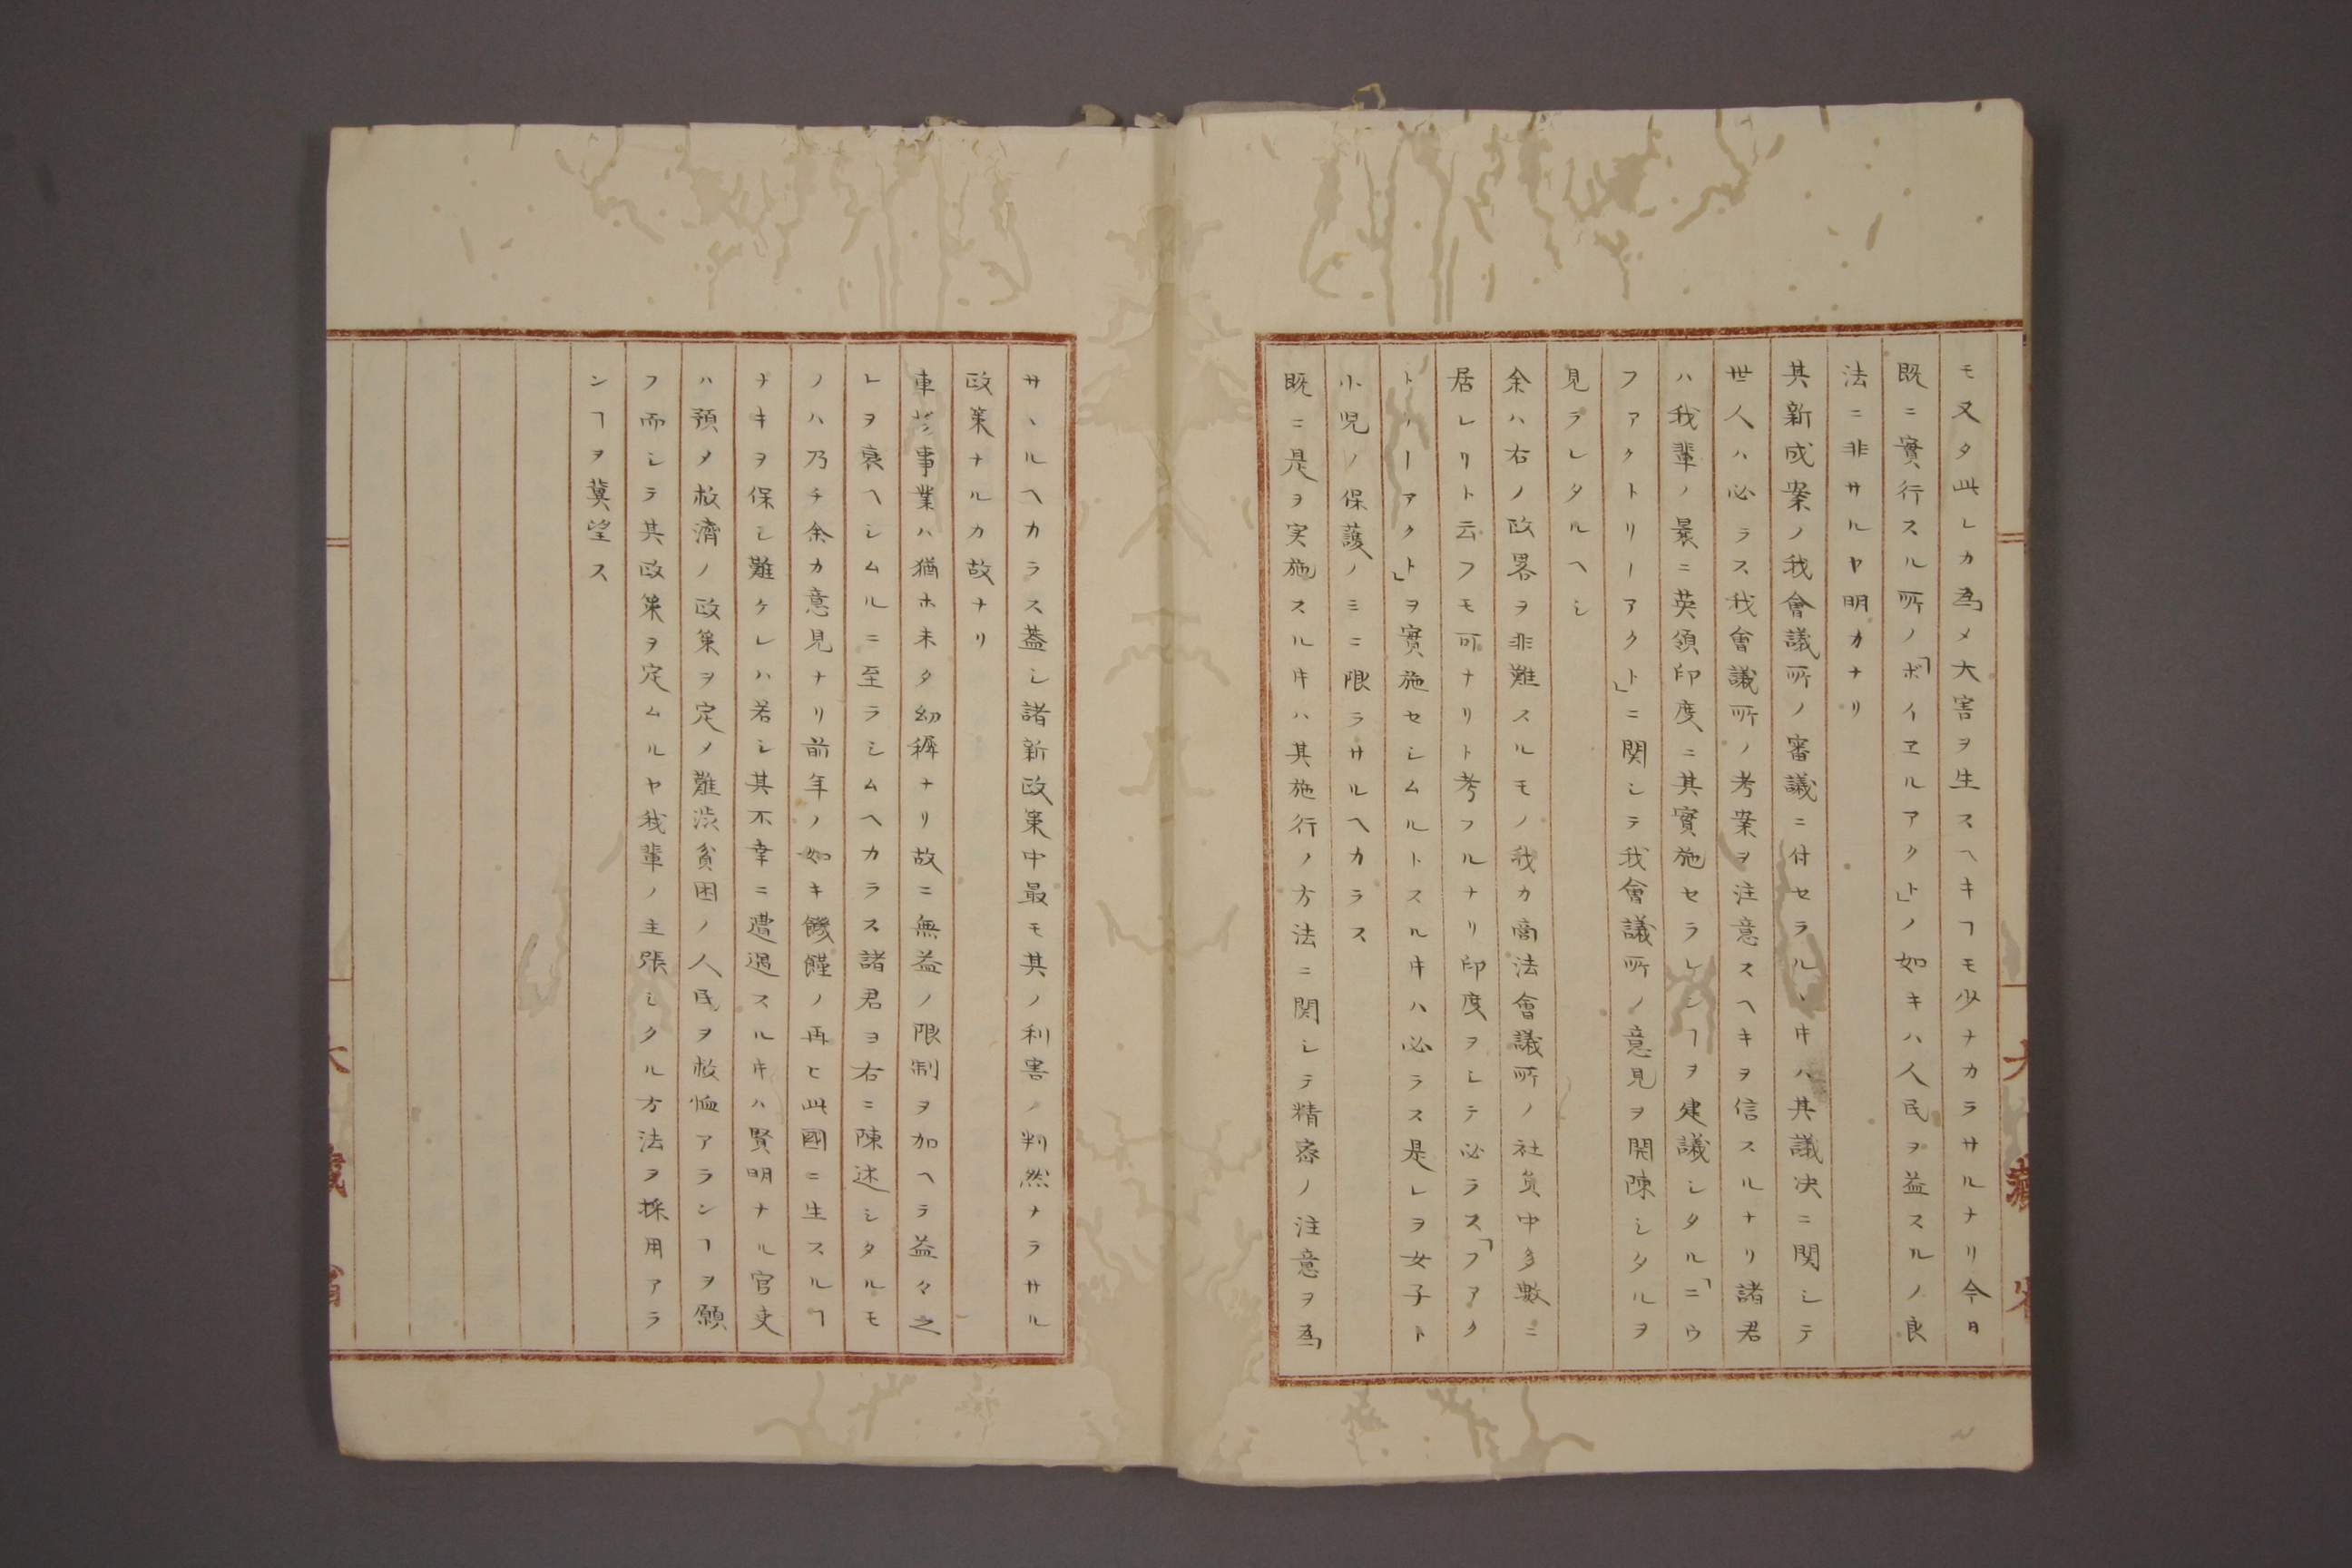 モ又タ此レカ為メ大害ヲ生スヘキヿモ少ナカラサルナリ今日
既ニ實行スル所ノ「ボイヱルアクト」ノ如キハ人民ヲ益スルノ良
法ニ非サルヤ明カナリ
其新成案ノ我會議所ノ審議ニ付セラルヽ𪜈ハ其議决ニ関シテ
世人ハ必ラス我會議所ノ考案ヲ注意スヘキヲ信スルナリ諸君
ハ我輩ノ曩ニ英領印度ニ其實施セラレンヿヲ建議シタル「ニウ
ファクトリーアクト」ニ関シテ我會議所ノ意見ヲ開陳シタルヲ
見ラレタルヘシ
余ハ右ノ政畧ヲ非難スルモノ我カ商法會議所ノ社負中多數ニ
居レリト云フモ可ナリト考フルナリ印度ヲシテ必ラス「フアク
トノーアクト」ヲ實施セシムルトスル𪜈ハ必ラス是レヲ女子ト
小児ノ保護ノミニ限ラサルヘカラス
既ニ是ヲ実施スル𪜈ハ其施行ノ方法ニ関シテ精密ノ注意ヲ為
サヽルヘカラス蓋シ諸新政策中最モ其ノ利害ノ判然ナラサル
政策ナルカ故ナリ
事業ハ猶ホ未タ幼穉ナリ故ニ無益ノ限制ヲ加ヘテ益々之
レヲ衰ヘシムルニ至ラシムヘカラス諸君ヨ右ニ陳述シタルモ
ノハ乃チ余カ意見ナリ前年ノ如キ饑饉ノ再ヒ此國ニ生スルヿ
ナキヲ保シ難ケレハ若シ其不幸ニ遭遇スル𪜈ハ賢明ナル官吏
ハ預メ救濟ノ政策ヲ定ノ難渋貧困ノ人民ヲ救恤アランヿヲ願
フ而シテ其政策ヲ定ムルヤ我輩ノ主張シタル方法ヲ採用アラ
ンヿヲ冀望ス
大藏省